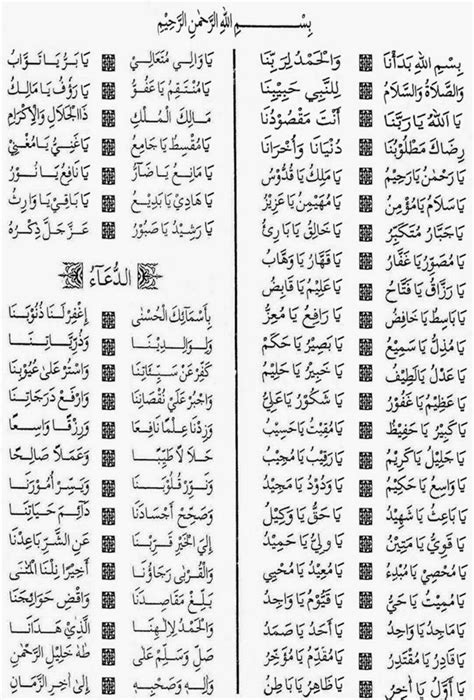 بِسْمِ اللهِ الرَّحْمٰنِ الرَّحِيْمِ
بِسْمِ اللهِ بَدَأْنَا وَالْحَمْدُ لِرَبِّنَا
وَالصَّلَاةُ وَالسَّلَامُ لِلنَّبِي حَبِيْبِنَا
يَا اَللهُ يَا رَبَّنَا أَنْتَ مَقْصُوْدُنَا
رِضَاكَ مَطْلُوْبُنَا دُنْيَانَا وَأُخْرَانَا
يَا رَحْمٰنُ يَا رَحِيْمُ يَا مَلِكُ يَا قُدُّوْسُ
يَا سَلَامُ يَا مُؤْمِنُ يَا مُهَيْمِنُ يَا عَزِيْزُ
يَا جَبَّارُ مُتَكَبِّرُ يَا خَالِقُ يَا بَارِئُ
يَا مُصَوِّرُ يَا غَفَّارُ يَا قَهَّارُ يَا وَهَّابُ
يَا رَزَّاقُ يَا فَتَّاحُ يَا عَلِيْمُ يَا قَابِضُ
يَا بَاسِطُ يَا خَافِضُ يَا رَافِعُ يَا مُعِزُّ
يَا مُذِلُّ يَا سَمِيْعُ يَا بَصِيْرُ يَا حَكَمُ
يَا عَدْلُ يَا لَطِيْفُ يَا خَبِيْرُ يَا حَلِيْمُ
يَا عَظِيْمُ يَا غَفُوْرُ يَا شَكُوْرُ يَا عَلِيُّ
يَا كَبِيْرُ يَا حَفِيْظُ يَا مُقِيْتُ يَا حَسِيْبُ
يَا جَلِيْلُ يَا كَرِيْمُ يَا رَقِيْبُ يَا مُجِيْبُ
يَا وَاسِعُ يَا حَكِيْمُ يَا وَدُوْدُ يَا مَجِيْدُ
يَا بَاعِثُ يَا شَهِيْدُ يَا حَقُّ يَا وَكِيْلُ
يَا قَوِيُّ يَا مَتِيْنُ يَا وَلِيُّ يَا حَمِيْدُ
يَا مُحْصِيْ يَا مُبْدِءُ يَا مُعِيْدُ يَا مُحْيِيْ
يَا مُمِيْتُ يَا حَيُّ يَا قَيُّوْمُ يَا وَاجِدُ
يَا مَاجِدُ يَا وَاحِدُ يَا أَحَدُ يَا صَمَدُ
يَا قَادِرُ يَا مُقْتَدِرُ يَا مُقَدِّمُ يَا مُؤَخِّرُ
يَا أَوَّلُ يَا آخِرُ يَا ظَاهِرُ يَا بَاطِنُ
يَا وَالِيْ مُتَعَالِيْ يَا بَرُّ يَا تَوَّابُ
يَا مُنْتَقِمُ يَا عَفُوُّ يَا رَؤُفُ يَا مَالِكُ
مَالِكَ الْمُلْكِ ذَا الْجَلَالِ وَالْإِكْرَامِ
يَا مُقْسِطُ يَا جَامِعُ يَا غَنِيُّ يَا مُغْنِيْ
يَا مَانِعُ يَا ضَآرُّ يَا نَافِعُ يَا نُوْرُ
يَا هَادِيْ يَا بَدِيْعُ يَا بَاقِيْ يَا وَارِثُ
يَا رَشِيْدُ يَا صَبُوْرُ عَزَّ جَلَّ ذِكْرُهُ
الدُّعَاءُ
بِأَسْمَائِكَ الْحُسْنٰى إِغْفِرْ لَنَا ذُنُوْبَنَا
وَلِوَالِدِيْنَا وَذُرِّيَّاتِنَا
كَفِّرْ عَنْ سَيِّئَاتِنَا وَاسْتُرْ عَلٰى عُيُوْبِنَا
وَاجْبُرْ عَلٰى نُقْصَانِنَا وَارْفَعْ دَرَجَاتِنَا
وَزِدْنَا عِلْمًا نَافِعًا وَرِزْقًا وَاسِعًا
حَلَالًا طَيِّبًا وَعَمَلًا صَالِحًا
وَنَوِّرْ قُلُوْبَنَا وَيَسِّرْ أُمُوْرَنَا
وَصَحِّحْ أَجْسَادَنَا دَائِمَ حَيَاتِنَا
إِلَى الْخَيْرِ قَرِّبْنَا عَنِ الشَّرِّ بَاعِدْنَا
وَالْقُرْبٰى رَجَاؤُنَا أَخِيْرًا نِلْنَا الْمُنٰى
بَلِّغْ مَقَاصِدَنَا وَاقْضِ حَوَائِجَنَا
وَالْحَمْدُ لِإِلٰهِنَا الَّذِيْ هَدَانَا
صَلِّ وَسَلِّمْ عَلٰى طٰهَ خَلِيْلِ الرَّحْمٰنِ
وَآلِهِ وَصَحْبِهِ إِلٰى آخِرِ الزَّمَانِ